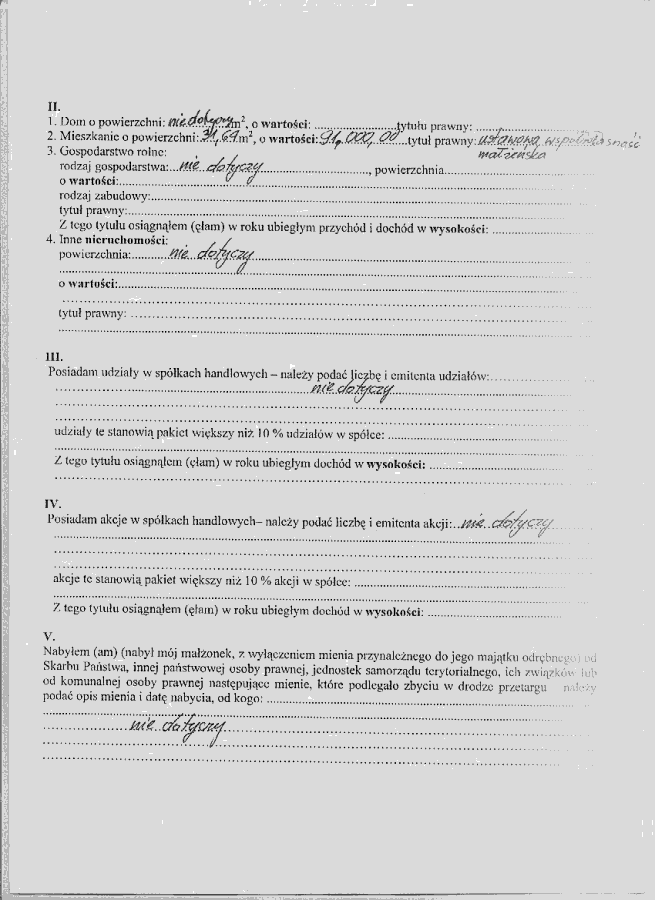 II.
1. Dom o powierzchni: nie dotyczy m², o wartości: ........................tytułu prawny: ........................
2. Mieszkanie o powierzchni: 31,69 m², o wartości: 91.000,00 tytuł prawny: ustawowa współwłasność
małżeńska
3. Gospodarstwo rolne:
rodzaj gospodarstwa: nie dotyczy ........................, powierzchnia........................
o wartości:........................
rodzaj zabudowy:........................
tytuł prawny:........................
Z tego tytułu osiągnąłem (ęłam) w roku ubiegłym przychód i dochód w wysokości: ........................
4. Inne nieruchomości:
powierzchnia: nie dotyczy ........................
o wartości:........................
tytuł prawny: ........................
III.
Posiadam udziały w spółkach handlowych – należy podać liczbę i emitenta udziałów:........................
nie dotyczy
udziały te stanowią pakiet większy niż 10 % udziałów w spółce: ........................
Z tego tytułu osiągnąłem (ęłam) w roku ubiegłym dochód w wysokości: ........................
IV.
Posiadam akcje w spółkach handlowych– należy podać liczbę i emitenta akcji: nie dotyczy
akcje te stanowią pakiet większy niż 10 % akcji w spółce: ........................
Z tego tytułu osiągnąłem (ęłam) w roku ubiegłym dochód w wysokości: ........................
V.
Nabyłem (am) (nabył mój małżonek, z wyłączeniem mienia przynależnego do jego majątku odrębnego) od
Skarbu Państwa, innej państwowej osoby prawnej, jednostek samorządu terytorialnego, ich związków lub
od komunalnej osoby prawnej następujące mienie, które podlegało zbyciu w drodze przetargu należy
podać opis mienia i datę nabycia, od kogo: ........................
nie dotyczy